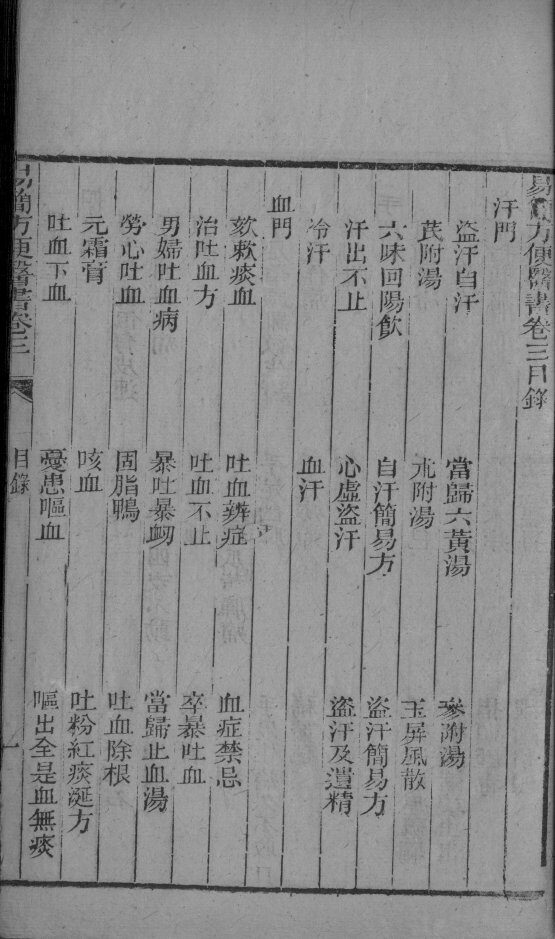 易簡方便醫書卷三目錄
汗門
盜汗自汗 當歸六黃湯 參附湯
芪附湯 朮附湯 玉屏風散
六味回陽飲 自汗簡易方 盜汗簡易方
汗出不止 心虛盜汗 盜汗及遺精
冷汗 血汗
血門
欬欶痰血 吐血辨症 血症禁忌
治吐血方 吐血不止 卒暴吐血
男婦吐血病 暴吐暴衂 當歸止血湯
勞心吐血 固脂鴨 吐血除根
元霜膏 咳血 吐粉紅痰涎方
吐血下血 憂患嘔血 嘔出全是血無痰
易簡方便醫書卷三 目錄 一